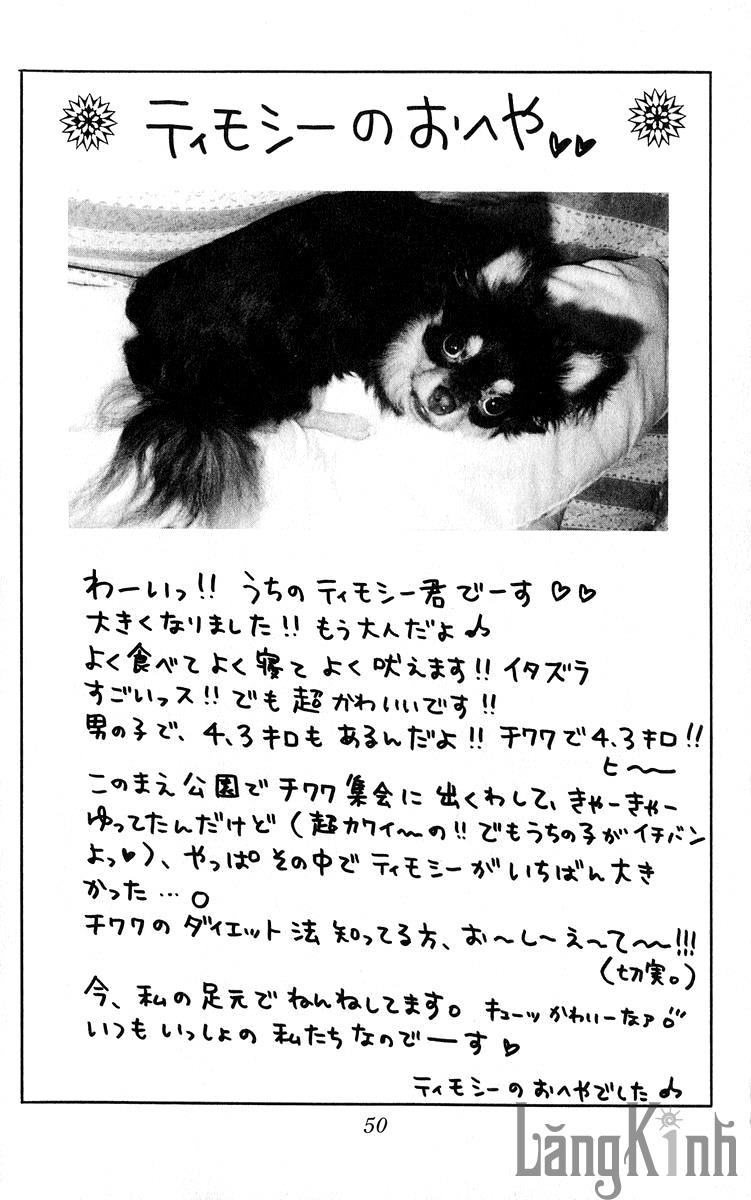 ティモシーのおへや♡♡
わーいっ!! うちの ティモシー君でーす ♡♡
大きくなりました!! もう大人だよ♪
よく食べて よく寝て よく 吠えます!! イタズラ
すごいっス!! でも 超 かわいいです!!
男の子で、4.3キロも あるんだよ!! チワワで4.3キロ!!
ヒ〜〜
このまえ 公園で チワワ 集会に 出くわして、きゃーきゃー
ゆってたんだけど(超カワイ〜の!! でもうちの子がイチバン
よっ♥)、やっぱ その中で ティモシーが いちばん 大き
かった…。
チワワの ダイエット 法 知ってる方、お〜し〜え〜て〜〜!!!
(切実。)
今、私の足元で ねんねしてます。 キューッ かわいーなァ。
いつも いっしょの 私たち なのでーーす ♡
ティモシーの おへやでした♪
50
LăngKính